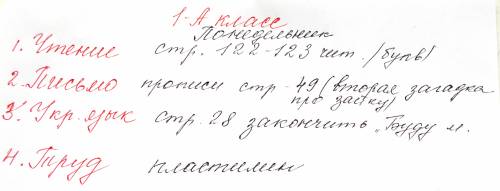 1-А класс
Понедельник
1. Чтение стр. 122-123 чит. /букв/
2. Письмо прописи стр. 49 (вторая загадка
про зайку)
3. Укр. язык стр. 28 закончить „Буду м.
4. Труд пластилин